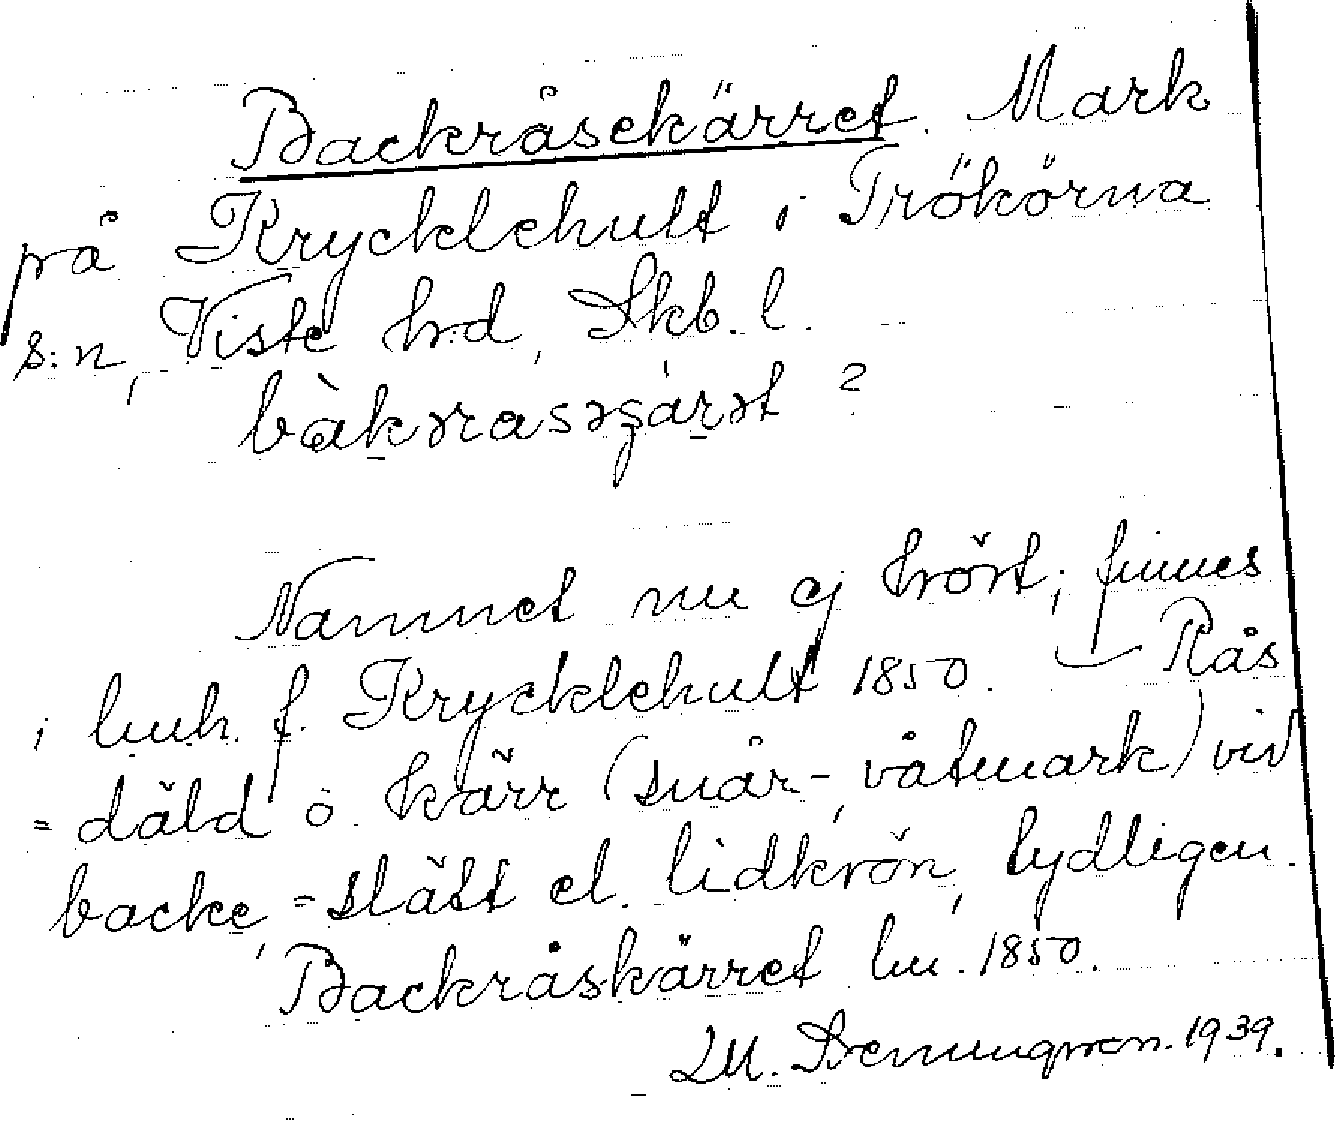 Backråsekärret. Mark
på Krycklehult i Trökörna
s:n, Viste hrd, Skb. l.
bàkrrasəʒárət ?
Namnet nu ej hört; finnes
i lmh. f. Krycklehult 1850. — Rås
= däld o. kärr (små-, våtmark) vid
backe, = slätt el. lidkrön, tydligen.
Backråskärret lm. 1850.
1939.